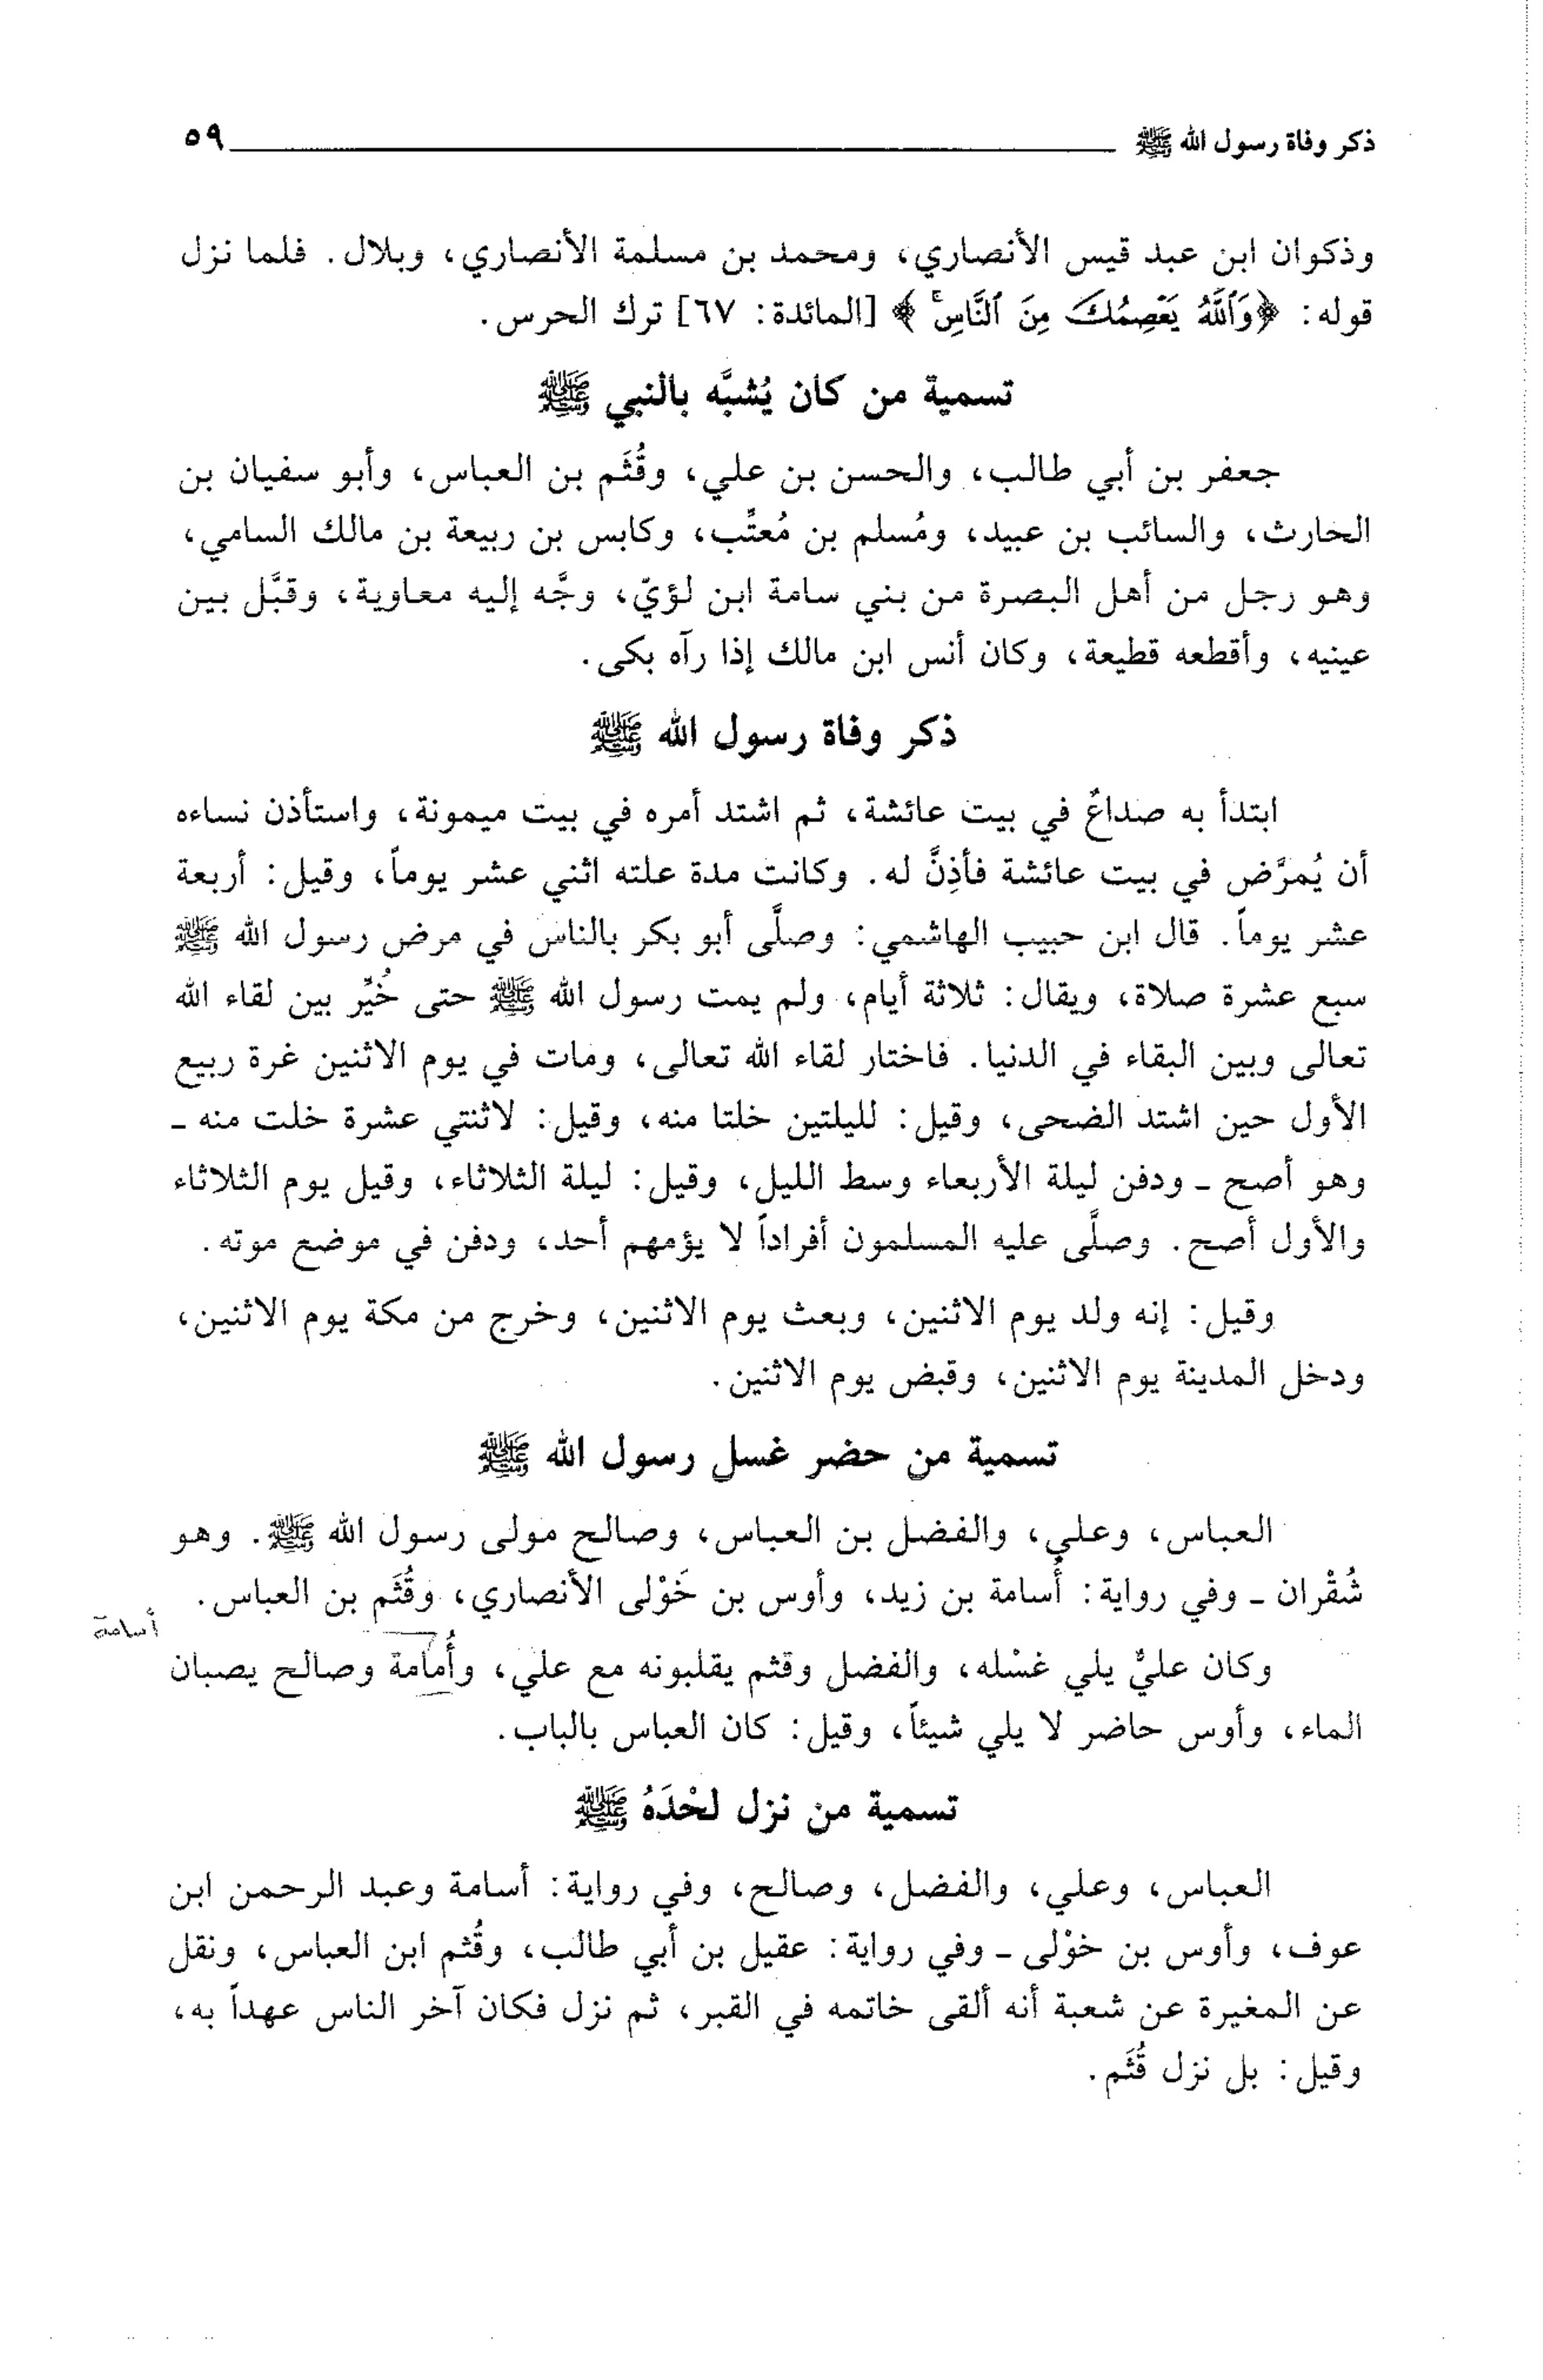 ذكر وفاة رسول الله ﷺ ٥٩
وذكوان ابن عبد قيس الأنصاري، ومحمد بن مسلمة الأنصاري، وبلال. فلما نزل
قوله: ﴿وَٱللَّهُ يَعْصِمُكَ مِنَ ٱلنَّاسِۚ﴾ [المائدة: ٦٧] ترك الحرس.
تسمية من كان يُشبَّه بالنبي ﷺ
جعفر بن أبي طالب، والحسن بن علي، وقُثَم بن العباس، وأبو سفيان بن
الحارث، والسائب بن عبيد، ومُسلم بن مُعتِّب، وكابس بن ربيعة بن مالك السامي،
وهو رجل من أهل البصرة من بني سامة ابن لؤيّ، وجَّه إليه معاوية، وقبَّل بين
عينيه، وأقطعه قطيعة، وكان أنس ابن مالك إذا رآه بكى.
ذكر وفاة رسول الله ﷺ
ابتدأ به صداعٌ في بيت عائشة، ثم اشتد أمره في بيت ميمونة، واستأذن نساءه
أن يُمرَّض في بيت عائشة فأذِنَّ له. وكانت مدة علته اثني عشر يوماً، وقيل: أربعة
عشر يوماً. قال ابن حبيب الهاشمي: وصلَّى أبو بكر بالناس في مرض رسول الله ﷺ
سبع عشرة صلاة، ويقال: ثلاثة أيام، ولم يمت رسول الله ﷺ حتى خُيِّر بين لقاء الله
تعالى وبين البقاء في الدنيا. فاختار لقاء الله تعالى، ومات في يوم الاثنين غرة ربيع
الأول حين اشتد الضحى، وقيل: لليلتين خلتا منه، وقيل: لاثنتي عشرة خلت منه ـ
وهو أصح ـ ودفن ليلة الأربعاء وسط الليل، وقيل: ليلة الثلاثاء، وقيل يوم الثلاثاء
والأول أصح. وصلَّى عليه المسلمون أفراداً لا يؤمهم أحد، ودفن في موضع موته.
وقيل: إنه ولد يوم الاثنين، وبعث يوم الاثنين، وخرج من مكة يوم الاثنين،
ودخل المدينة يوم الاثنين، وقبض يوم الاثنين.
تسمية من حضر غسل رسول الله ﷺ
العباس، وعلي، والفضل بن العباس، وصالح مولى رسول الله ﷺ. وهو
شُقْران ـ وفي رواية: أُسامة بن زيد، وأوس بن خَوْلى الأنصاري، وقُثَم بن العباس.
أسامة
وكان عليٌ يلي غسْله، والفضل وقثم يقلبونه مع علي، وأُمامة وصالح يصبان
الماء، وأوس حاضر لا يلي شيئاً، وقيل: كان العباس بالباب.
تسمية من نزل لحْدَهُ ﷺ
العباس، وعلي، والفضل، وصالح، وفي رواية: أسامة وعبد الرحمن ابن
عوف، وأوس بن خوْلى ـ وفي رواية: عقيل بن أبي طالب، وقُثم ابن العباس، ونقل
عن المغيرة عن شعبة أنه ألقى خاتمه في القبر، ثم نزل فكان آخر الناس عهداً به،
وقيل: بل نزل قُثَم.